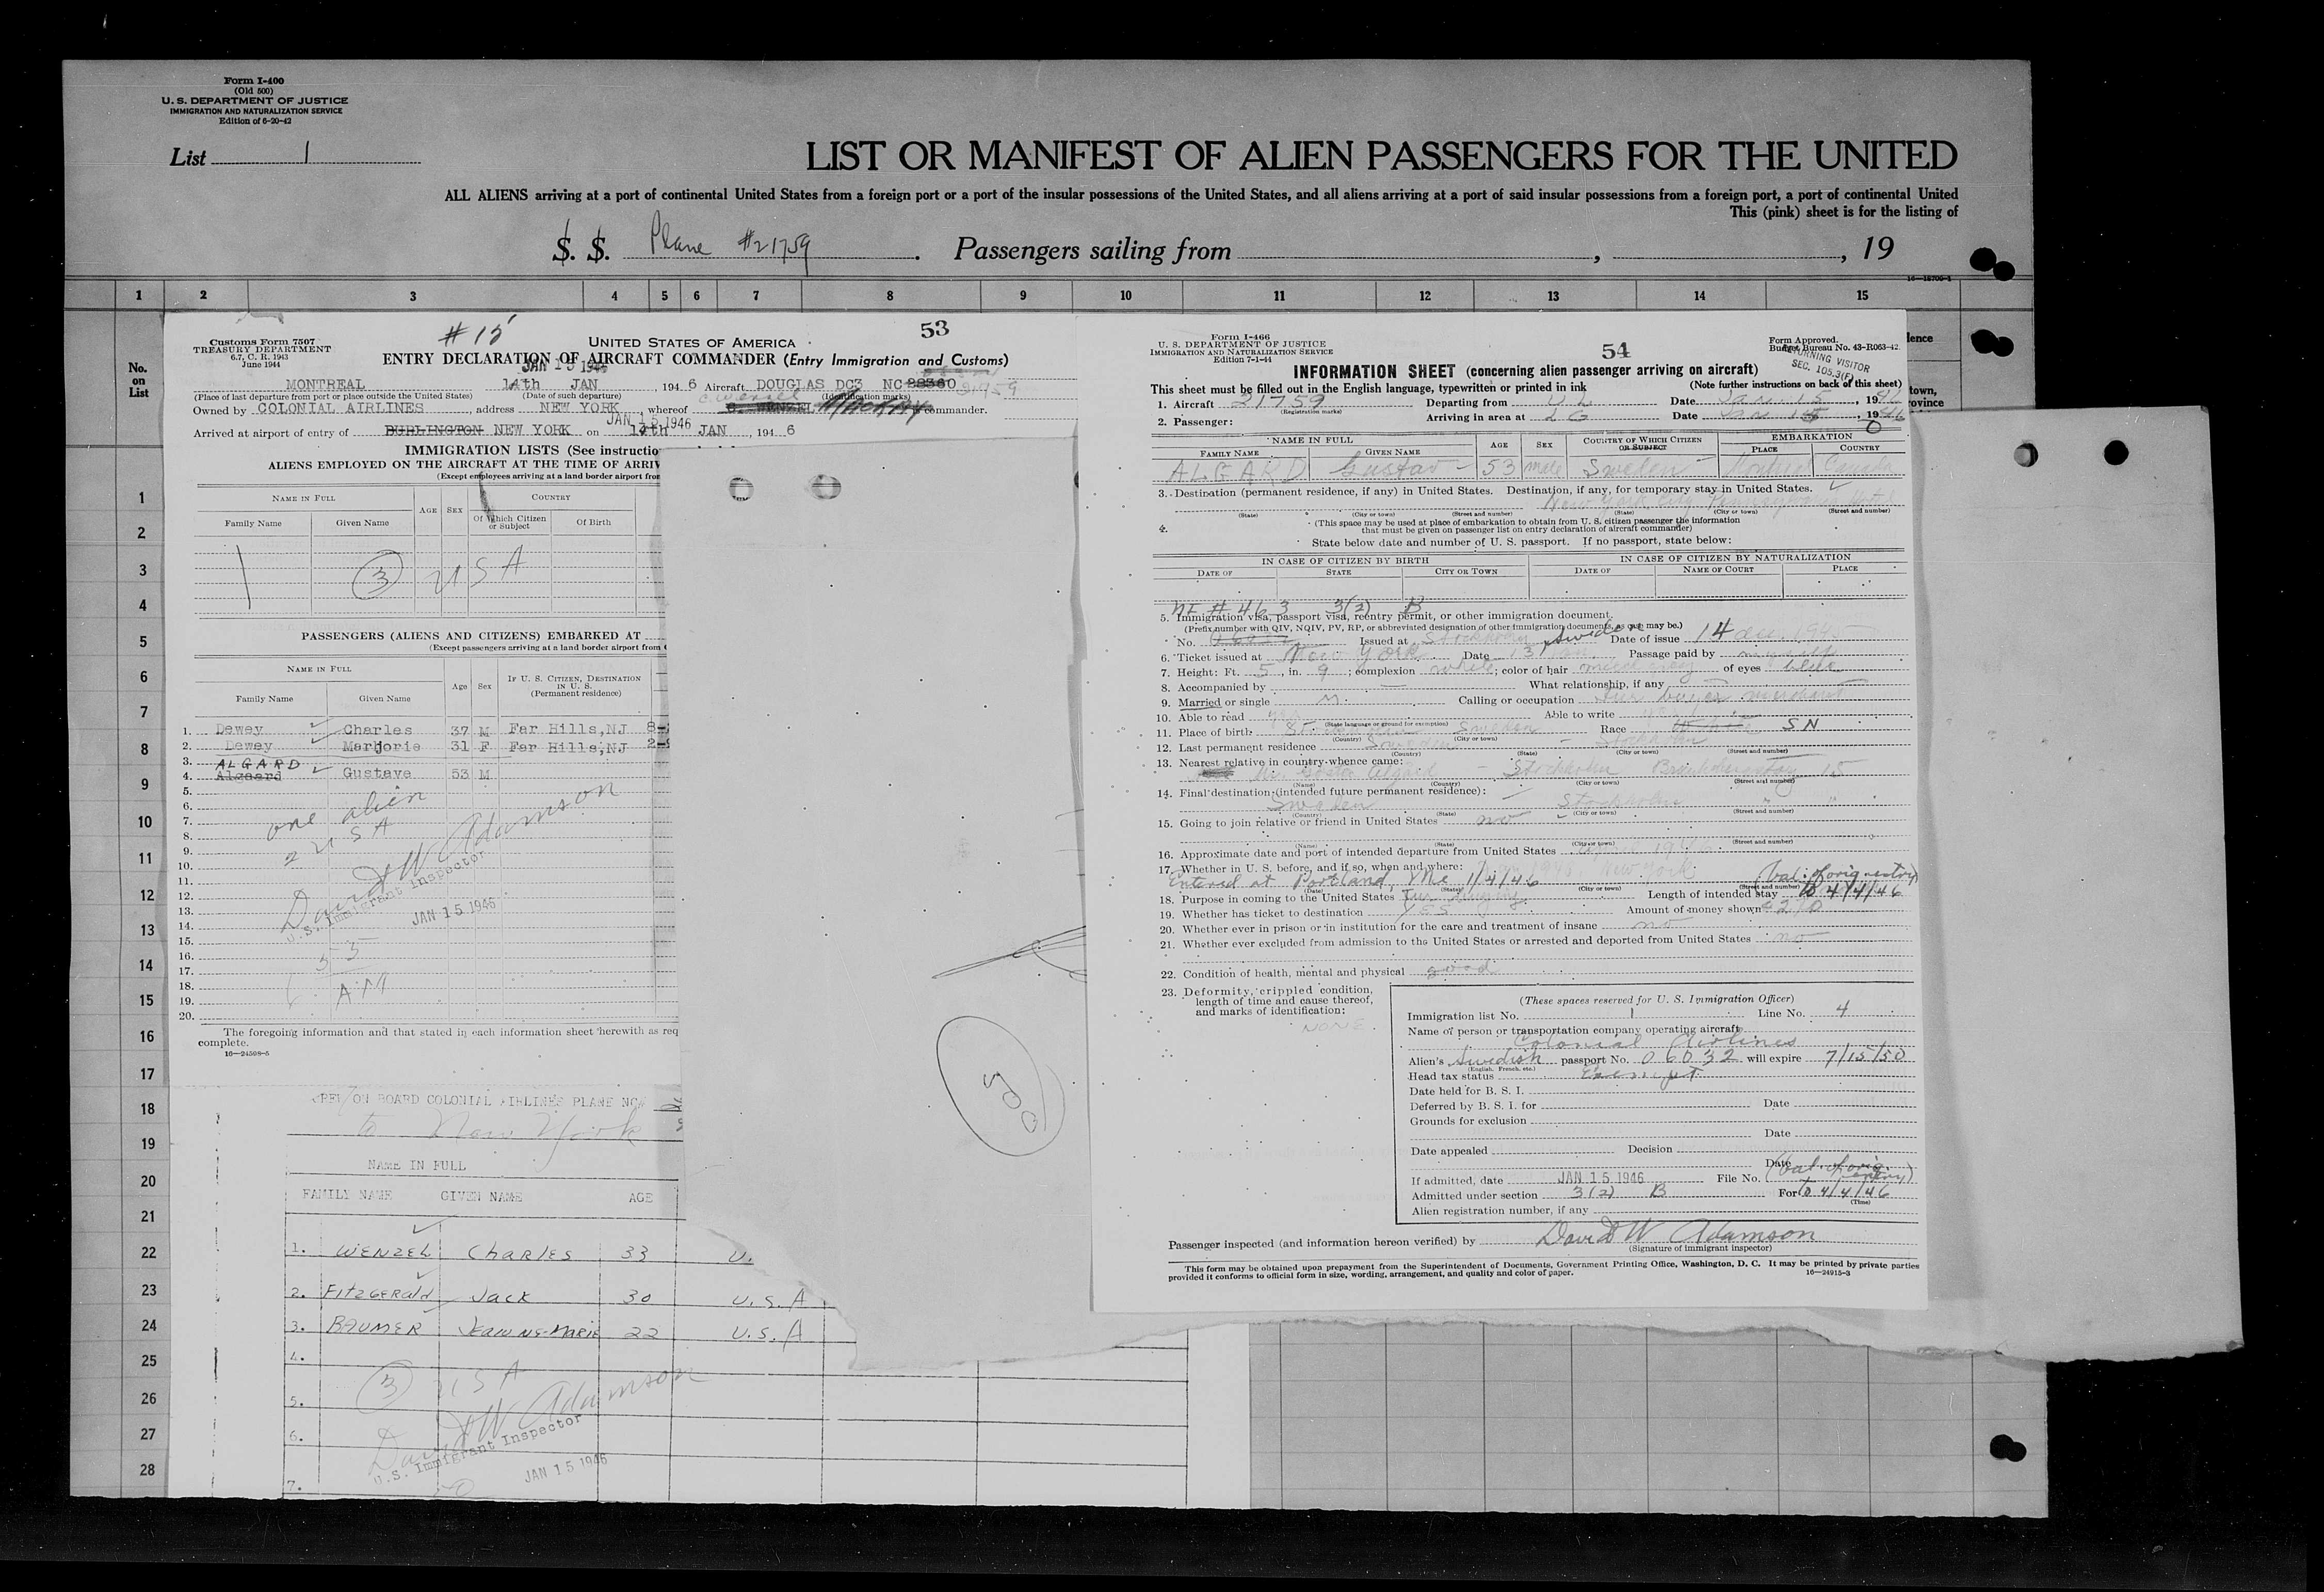 Form I-400
(Old 500)
U. S. DEPARTMENT OF JUSTICE
IMMIGRATION AND NATURALIZATION SERVICE
Edition of 6-20-42
List 1
LIST OR MANIFEST OF ALIEN PASSENGERS FOR THE UNITED
ALL ALIENS arriving at a port of continental United States from a foreign port or a port of the insular possessions of the United States, and all aliens arriving at a port of said insular possessions from a foreign port, a port of continental United
This (pink) sheet is for the listing of
S. S. Plane #21759. Passengers sailing from , , 19
1 2 3 4 5 6 7 8 9 10 11 12 13 14 15
No. on List
1
2
3
4
5
6
7
8
9
10
11
12
13
14
15
16
17
18
19
20
21
22
23
24
25
26
27
28
Customs Form 7507
TREASURY DEPARTMENT
6.7, C. R. 1943
June 1944
# 15
53
UNITED STATES OF AMERICA
ENTRY DECLARATION OF AIRCRAFT COMMANDER (Entry Immigration and Customs)
JAN 15 1946
MONTREAL 14th JAN , 194 6 Aircraft DOUGLAS DC3 NC 21759
(Place of last departure from port or place outside the United States) (Date of such departure) (Identification marks)
Owned by COLONIAL AIRLINES , address NEW YORK , whereof C. Wenzel commander.
JAN 15 1946
Arrived at airport of entry of BURLINGTON NEW YORK on 14th JAN , 194 6
IMMIGRATION LISTS (See instructio
ALIENS EMPLOYED ON THE AIRCRAFT AT THE TIME OF ARRIV
(Except employees arriving at a land border airport fror
NAME IN FULL AGE SEX COUNTRY
Family Name Given Name Of Which Citizen or Subject Of Birth
3 USA
PASSENGERS (ALIENS AND CITIZENS) EMBARKED AT
(Except passengers arriving at a land border airport from
NAME IN FULL Age Sex IF U. S. CITIZEN, DESTINATION IN U. S. (Permanent residence)
Family Name Given Name
1. Dewey Charles 37 M Far Hills,NJ 8-
2. Dewey Marjorie 31 F Far Hills,NJ 2-
3. ALGARD
4. Algaard Gustave 53 M
5.
6.
7.
8.
9.
10.
11.
12.
13.
14.
15.
16.
17.
18.
19.
20.
one alien
2 USA
David W Adamson
U.S. Immigrant Inspector
JAN 15 1946
AM
The foregoing information and that stated in each information sheet herewith as req
complete.
16—24598-5
ON BOARD COLONIAL AIRLINES PLANE NC
to New York
NAME IN FULL
FAMILY NAME GIVEN NAME AGE
1. WENZEL Charles 33 U.
2. FitzGerald Jack 30 U.S.A
3. BAUMER Jeanne-Marie 22 U.S.A
4.
5.
6.
7.
3 USA
David W Adamson
U.S. Immigrant Inspector
JAN 15 1946
Form I-466
U. S. DEPARTMENT OF JUSTICE
IMMIGRATION AND NATURALIZATION SERVICE
Edition 7-1-44
54
Form Approved.
Budget Bureau No. 43-R063-42.
RETURNING VISITOR
SEC. 105.3(F)
INFORMATION SHEET (concerning alien passenger arriving on aircraft)
This sheet must be filled out in the English language, typewritten or printed in ink (Note further instructions on back of this sheet)
1. Aircraft 21759 Departing from UL Date Jan. 15 , 1946
(Registration marks)
Arriving in area at LG Date Jan 15 , 1946
2. Passenger:
NAME IN FULL AGE SEX COUNTRY OF WHICH CITIZEN OR SUBJECT EMBARKATION
FAMILY NAME GIVEN NAME PLACE COUNTRY
ALGARD Gustav 53 male Sweden Montreal Canada
3. Destination (permanent residence, if any) in United States. Destination, if any, for temporary stay in United States.
New York City Pennsylvania Hotel
(State) (City or town) (Street and number) (State) (City or town) (Street and number)
4. (This space may be used at place of embarkation to obtain from U. S. citizen passenger the information
that must be given on passenger list on entry declaration of aircraft commander)
State below date and number of U. S. passport. If no passport, state below:
IN CASE OF CITIZEN BY BIRTH IN CASE OF CITIZEN BY NATURALIZATION
DATE OF STATE CITY OR TOWN DATE OF NAME OF COURT PLACE
# 463 3(2) B
5. Immigration visa, passport visa, reentry permit, or other immigration document.
(Prefix number with QIV, NQIV, PV, RP, or abbreviated designation of other immigration documents, as out may be.)
No. Issued at Stockholm Sweden Date of issue 14 dec. 1945
6. Ticket issued at New York Date 13 Jan. Passage paid by myself
7. Height: Ft. 5 , in. 9 ; complexion white ; color of hair of eyes blue
8. Accompanied by — What relationship, if any —
9. Married or single M. Calling or occupation fur buyer merchant
10. Able to read yes Able to write
(State language or ground for exemption)
11. Place of birth Sweden Race SN
(Country) (City or town)
12. Last permanent residence Sweden - Stockholm
(Country) (State) (City or town) (Street and number)
13. Nearest relative in country whence came:
Algard - Stockholm 15
(Name) (Country) (City or town) (Street and number)
14. Final destination (intended future permanent residence):
Sweden Stockholm
(Country) (State) (City or town) (Street and number)
15. Going to join relative or friend in United States no
(Name) (State) (City or town) (Street and number)
16. Approximate date and port of intended departure from United States
17. Whether in U. S. before, and if so, when and where: New York
Entered at Portland, Me 1/4/46 (bal. of orig entry)
(Date) (State) (City or town) (Street and number)
18. Purpose in coming to the United States Fur buying Length of intended stay to 4/4/46
19. Whether has ticket to destination YES Amount of money shown
20. Whether ever in prison or in institution for the care and treatment of insane no
21. Whether ever excluded from admission to the United States or arrested and deported from United States no
22. Condition of health, mental and physical good
23. Deformity, crippled condition,
length of time and cause thereof,
and marks of identification:
NONE.
(These spaces reserved for U. S. Immigration Officer)
Immigration list No. 1 Line No. 4
Name of person or transportation company operating aircraft
Colonial Airlines
Alien's Swedish passport No. 06032 will expire 7/15/50
(English, French, etc.)
Head tax status Exempt
Date held for B. S. I.
Deferred by B. S. I. for Date
Grounds for exclusion
Date
Date appealed Decision
Date
(bal. of orig. entry)
If admitted, date JAN 15 1946 File No.
Admitted under section 3(2) B For to 4/4/46
(Time)
Alien registration number, if any
Passenger inspected (and information hereon verified) by David W Adamson
(Signature of immigrant inspector)
This form may be obtained upon prepayment from the Superintendent of Documents, Government Printing Office, Washington, D. C. It may be printed by private parties
provided it conforms to official form in size, wording, arrangement, and quality and color of paper. 16—24915-3
lence
town,
rovince